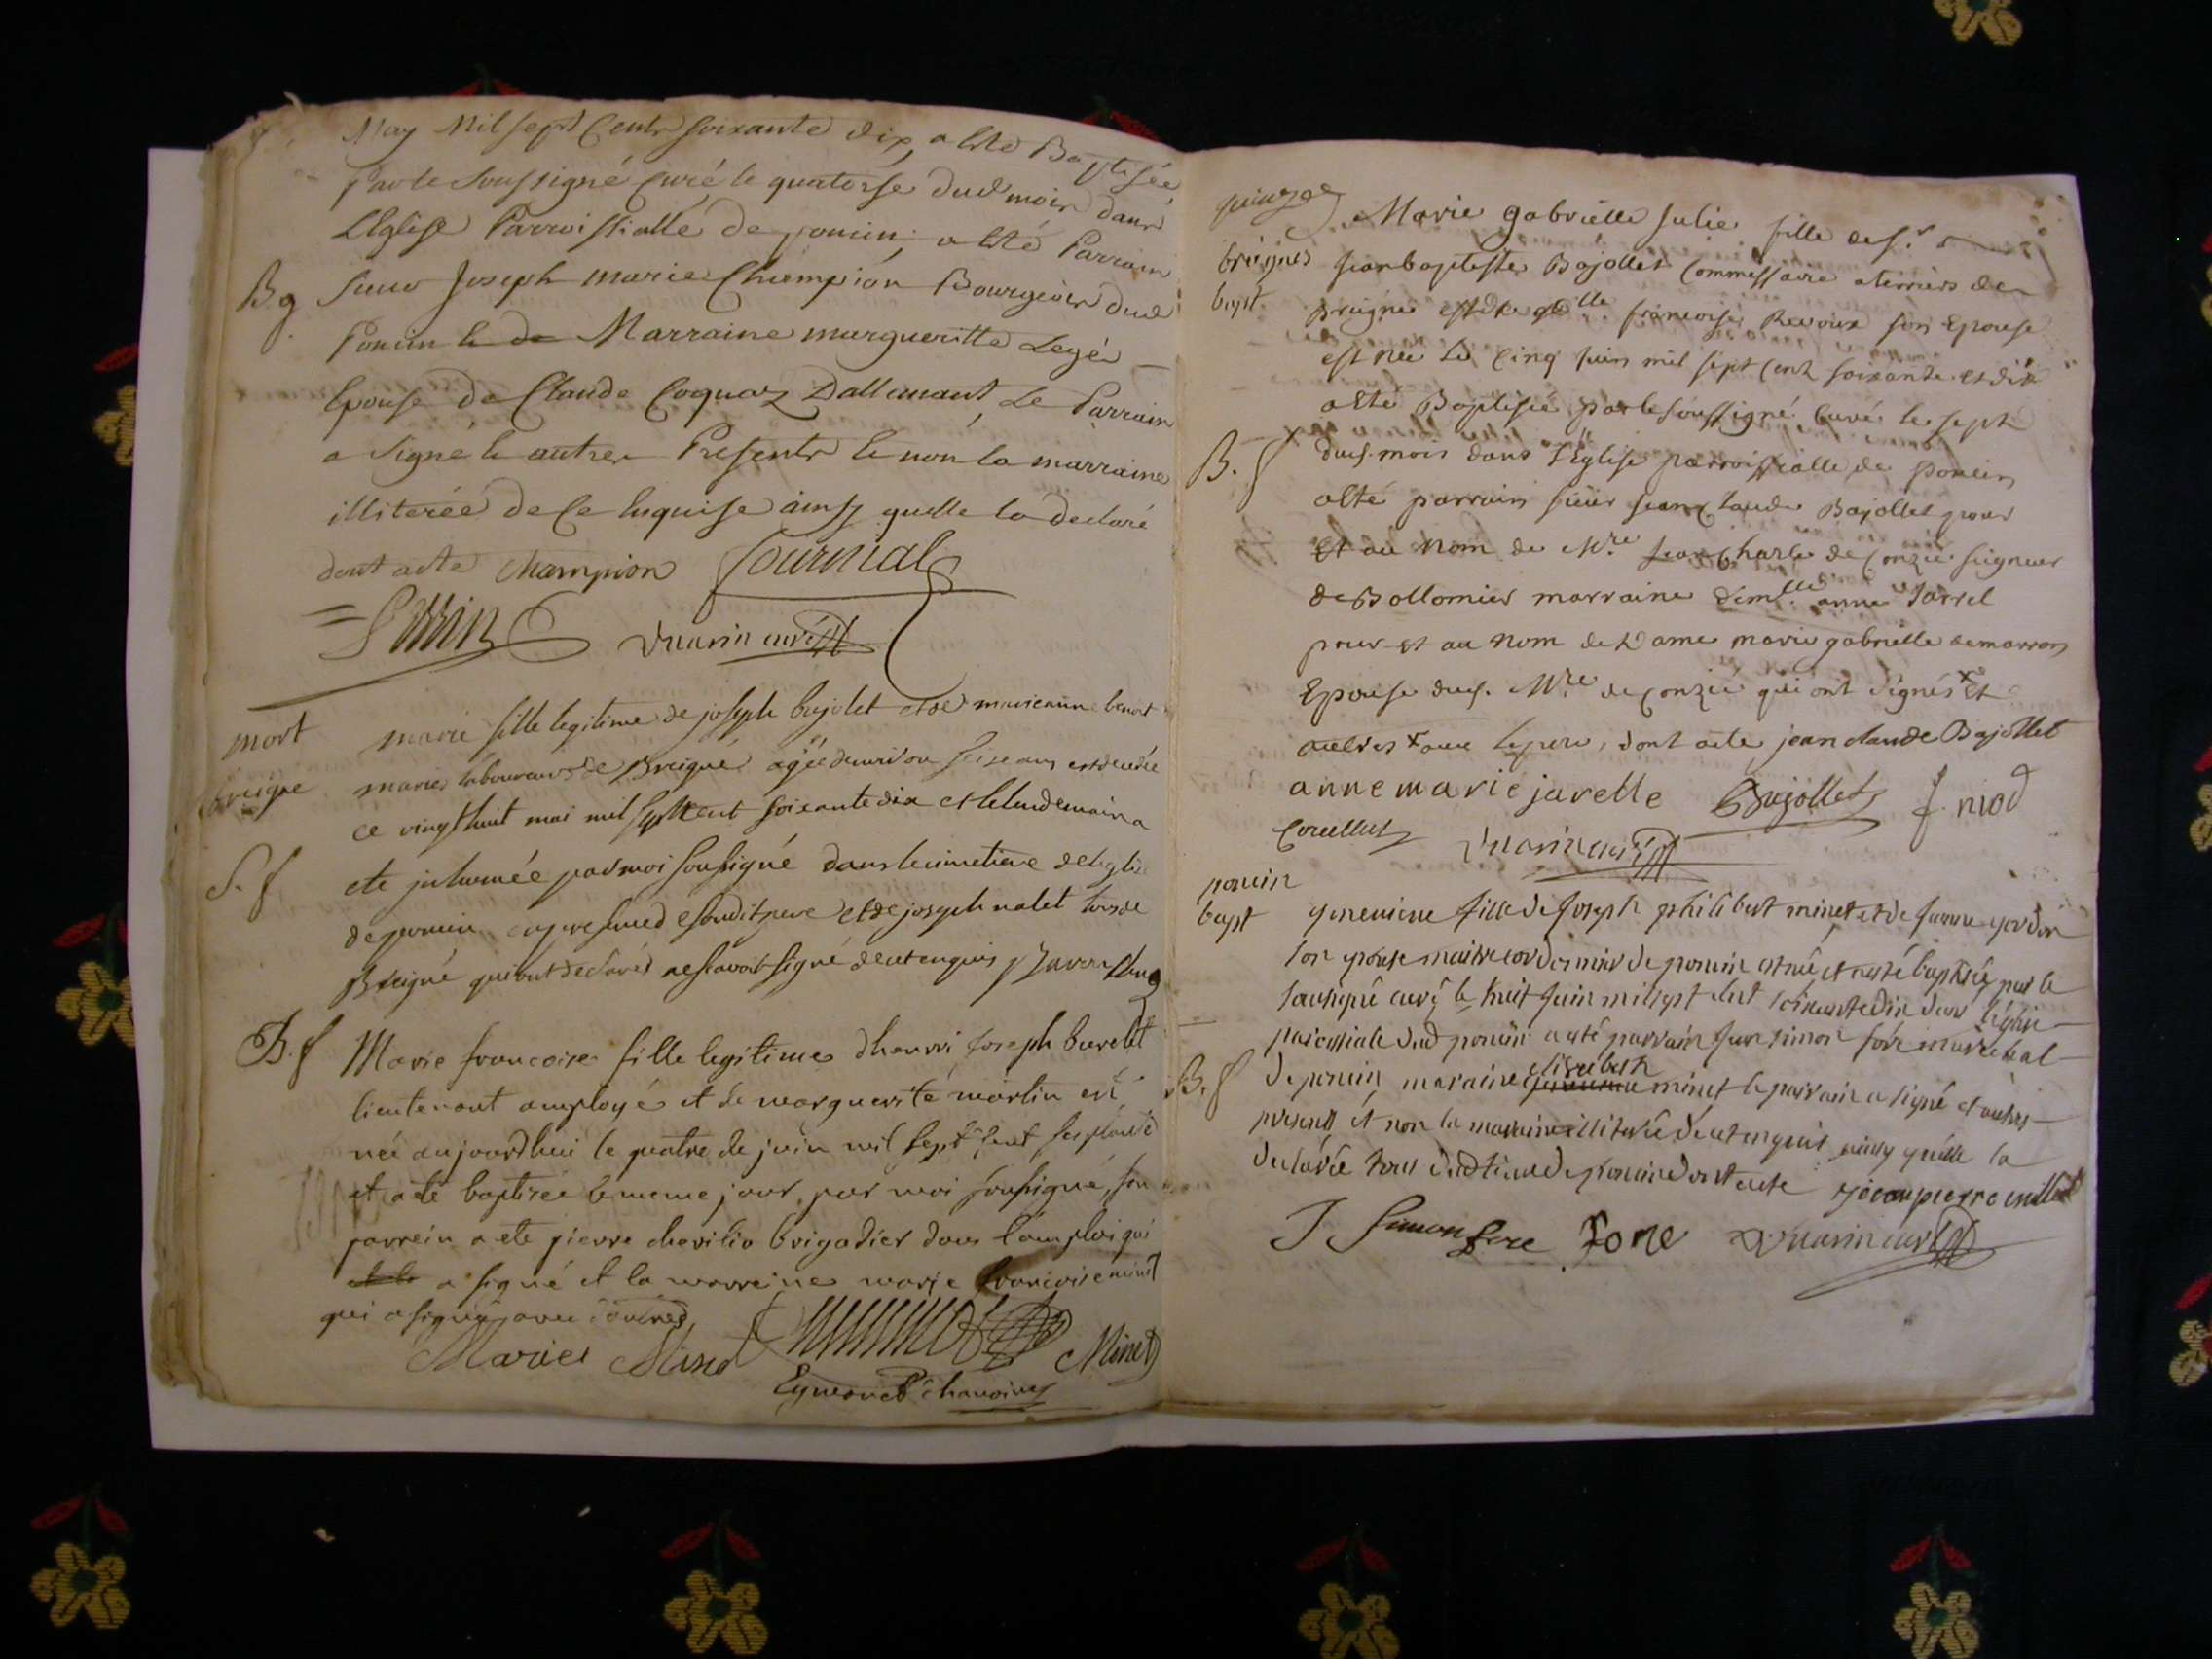 May Mil sept Cents soixante dix, a esté Baptisée
Par le Soussigné Curé le quatorse dud mois dans
L'Eglise Parroissialle de poncin; a esté Parrain
B. g Sieur Joseph marie Champion Bourgeois dud
Poncin Marraine margueritte Legér
Epouse de Claude Coquaz Dallemant, Le Parrain
a signé le autres Presents le non la marraine
illiterée de ce Enquise ainsy quelle la declaré
dont acte champion fournial
vuarin curé
mort marie fille legitime de joseph bajolet et de marieanne benoit
breigne mariés laboureurs de Breigne agée denviron seise ans est decedée
ce vingt huit mai mil sept cent soixante dix et le lendemain a
S. f ete inhumée par moi soussigné dans le cimetiere de leglise
de poncin en presence de sondit pere et de joseph nalet tous de
Breigné qui ont declarés ne scavoir signé de ce enquis
B. f Marie francoise fille legitime d'henri joseph
lieutenant employé et de marguerite martin est
née aujourdhui le quatre de juin mil sept cent septante
et a été baptisée le meme jour par moi soussigné, son
parrein a ete pierre brigadier dans l'emploi qui
et la a signé et la marreine marie francoise minet
qui a signée avec
Marie Minet Minet
Eymonet chanoine
quinze Marie gabrielle julie fille de s.r
breignes jean baptiste Bajollet Commissaire a terriers de
bapt. Breigne et de d.lle francoise Revoux son Epouse
est née Le Cinq juin mil sept Cent soixante et dix
a esté Baptisée par le soussigné Curé le sept
B. f dud. mois dans l'Eglise parroissialle de poncin
a esté parrain sieur jean claude Bajollet pour
Et au Nom de M.re jean Charle de Conzié seigneur
de Bollomier marraine dem.lle anne Jarrel
pour et au Nom de Dame marie gabrielle demarron
Epouse dud. M.re de Conzié qui ont signés x Et
autres x avec le pere, dont acte jean claude Bajollet
anne marie jarelle Bajollet f. niod
Corcellut vuarin curé
poncin
bapt genevieve fille de joseph philibert minet et de jeanne gordon
son epouse maitre cordonnier de poncin est née et a esté baptisée par le
soussigné curé le huit juin mil sept cent soixante dix dans l'église
paroissiale dud poncin a esté parrain jean simon fore marechal
elisabeth
B. f de poncin, maraine minet le parrain a signé et autres
presens et non la maraine illiterée de ce enquis ainsy quelle la
declarée tous dudit lieu de poncin dont acte jean pierre millet
J Simon fore fore vuarin curé